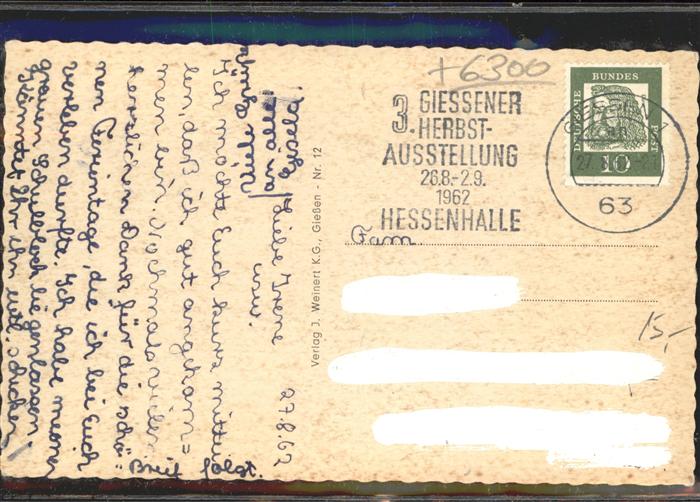 +6300
3. GIESSENER
HERBST-
AUSSTELLUNG
26.8.-2.9.
1962
HESSENHALLE
DEUTSCHE
BUNDES
POST
10
27.
63
Fam.
15,-
Verlag J. Weinert K.G., Gießen - Nr. 12
27.8.62
Liebe Irene
usw.
Ich möchte Euch kurz mittei
len, daß ich gut angekom=
men bin. Nochmals vielen
herzlichen Dank für die schö=
nen Ferientage die ich bei Euch
verleben durfte. Ich habe meinen
grauen Schulblock liegenlassen.
Könntet Ihr ihn evtl. schicken
Brief folgt.